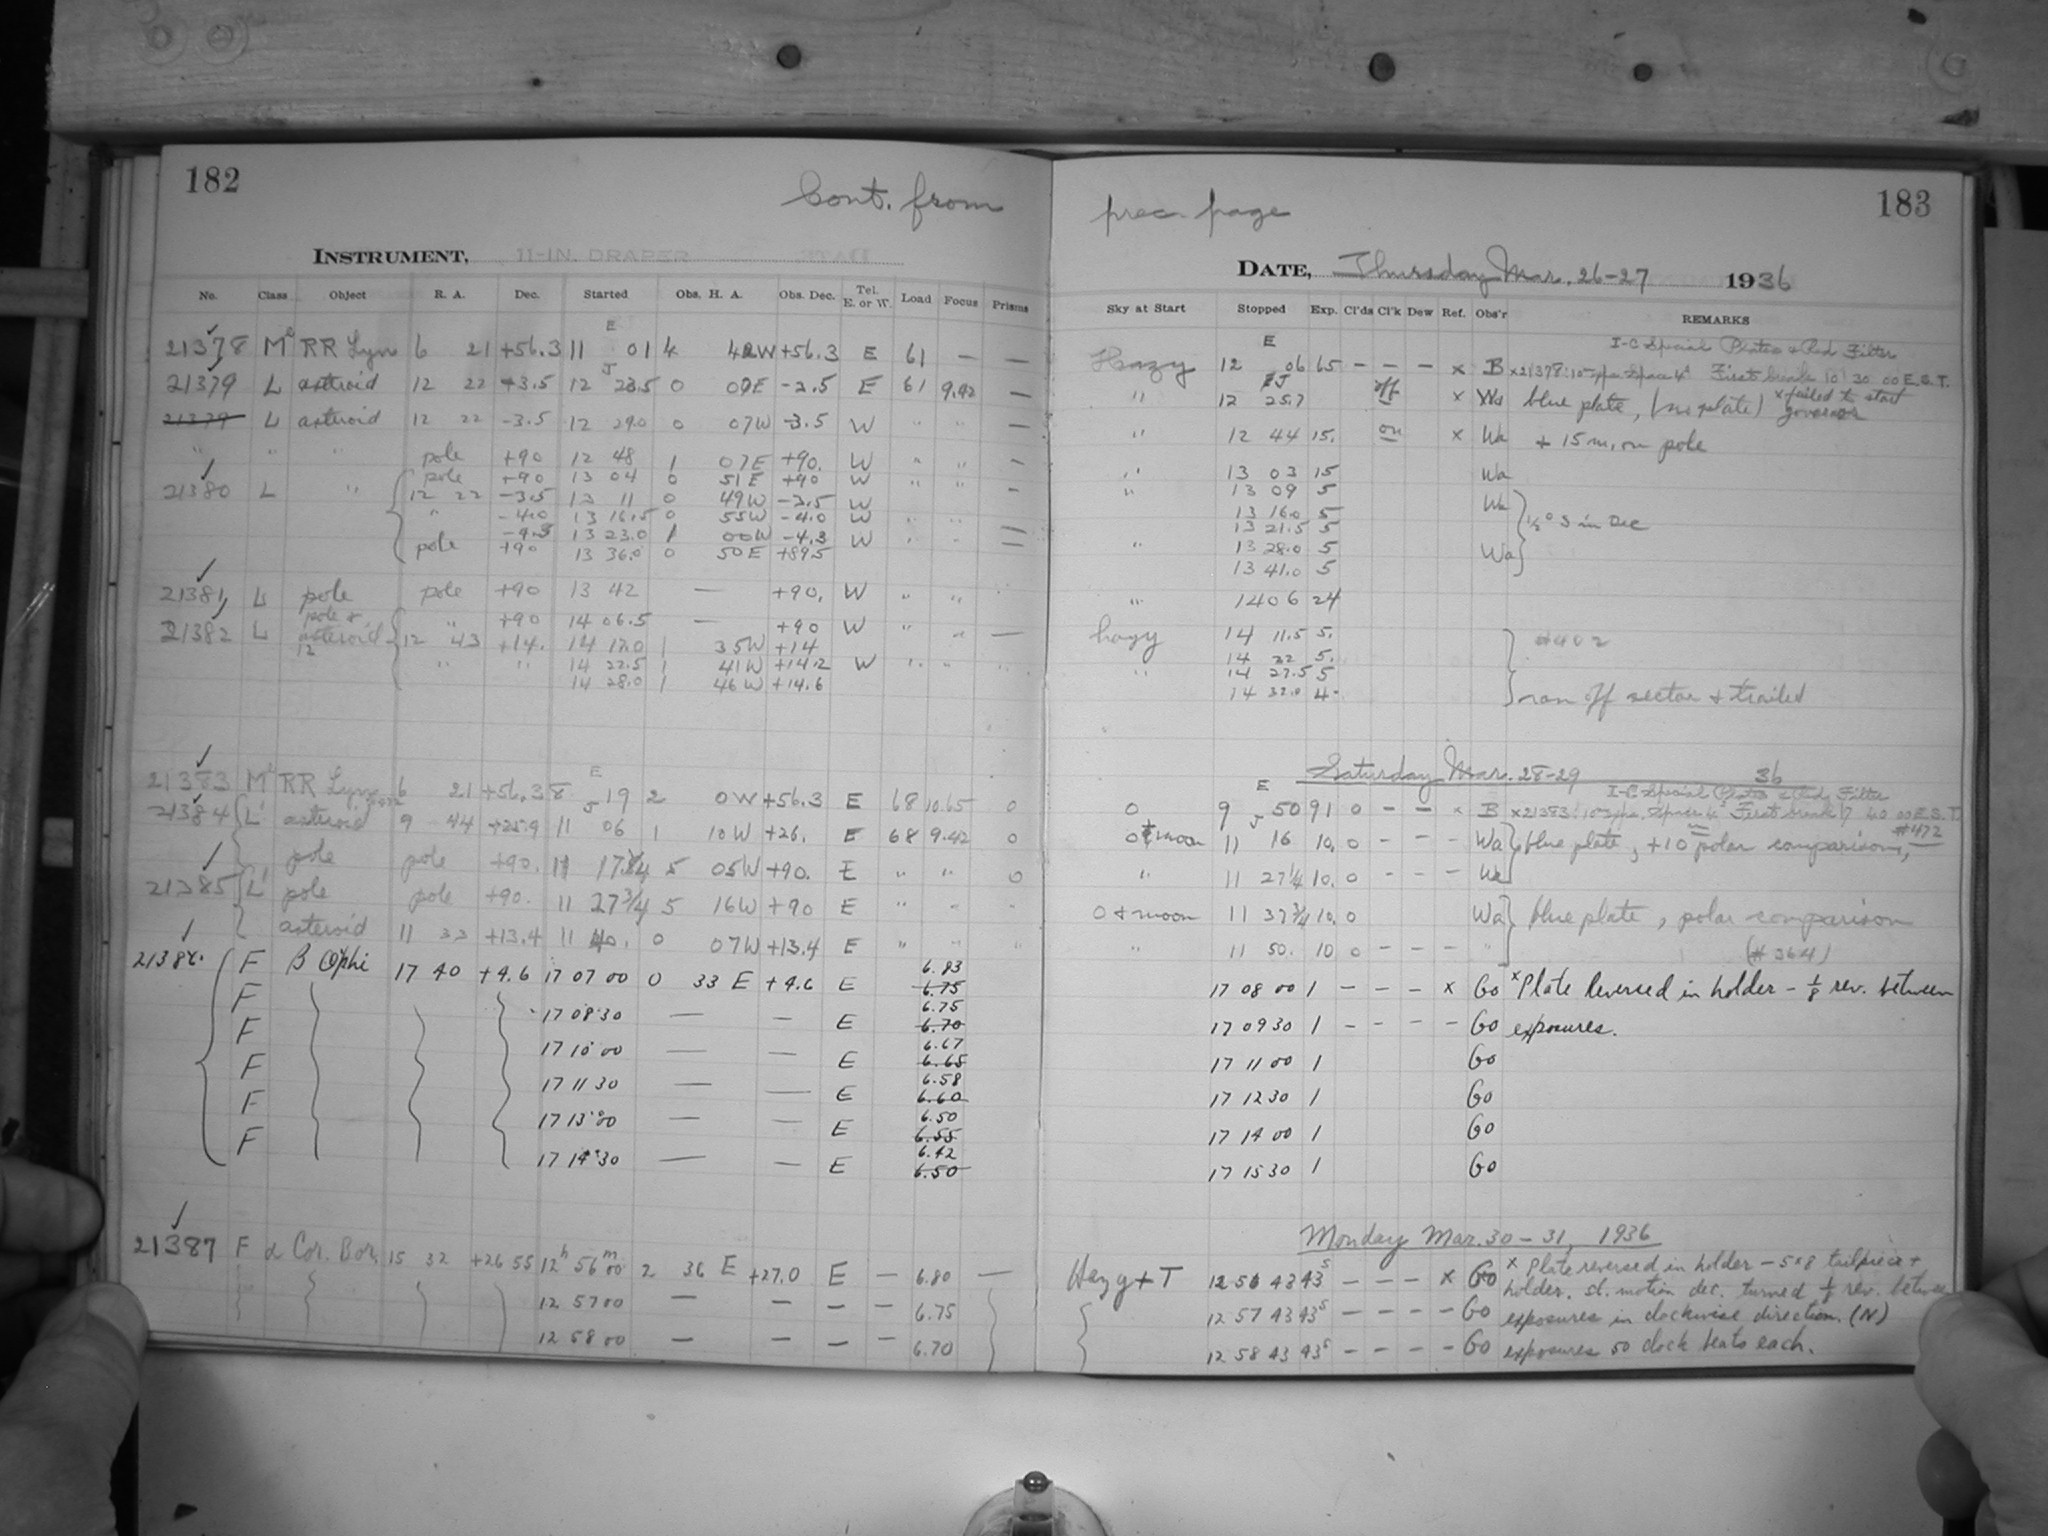 182
Cont. from
INSTRUMENT, 11-IN. DRAPER
No. Class Object R. A. Dec. Started Obs. H. A. Obs. Dec. Tel. E. or W. Load Focus Prisms
E
21378 M RR Lyn 6 21 +56.3 11 01 4 42W +56.3 E 61 — —
J
21379 L asteroid 12 22 +3.5 12 23.5 0 07E -2.5 E 61 9.42 —
21379 L asteroid 12 22 -3.5 12 29.0 0 07W -3.5 W " " —
" " " pole +90 12 48 1 07E +90. W " " —
pole +90 13 04 0 51E +90 W " "
21380 L " 12 22 -3.5 13 11 0 49W -3.5 W —
" -4.0 13 16.5 0 55W -4.0 W " "
-4.3 13 23.0 1 00W -4.3 W " " —
pole +90 13 36.0 0 50E +89.5 —
21381 L pole pole +90 13 42 — +90. W " "
pole + " +90 14 06.5 — +90 W " " —
21382 L asteroid 12 43 +14. 14 17.0 1 35W +14
12 " " 14 22.5 1 41W +14.2 W " " "
14 28.0 1 46W +14.6
E
21383 M RR Lyn 6 21 +56.3 8 19 2 0W +56.3 E 68 10.65 0
J
21384 L asteroid 9 44 +25.9 11 06 1 10W +26. E 68 9.42 0
pole pole +90. 11 17 5 05W +90. E " " 0
21385 L pole pole +90. 11 27 3/4 5 16W +90 E " "
asteroid 11 33 +13.4 11 40. 0 07W +13.4 E " " "
21386 F B Ophi 17 40 +4.6 17 07 00 0 33 E +4.6 E 6.83 6.75
F 17 08 30 — — E 6.75 6.70
F 17 10 00 — E 6.67 6.65
F 17 11 30 — — E 6.58 6.60
F 17 13 00 — — E 6.50 6.55
F 17 14 30 — — E 6.42 6.50
21387 F α Cor. Bor. 15 32 +26 55 12h 56m 00 2 36 E +27.0 E — 6.80 —
12 57 00 — — — 6.75
12 58 00 — — — 6.70
183
prec. page
DATE, Thursday Mar. 26-27 1936
Sky at Start Stopped Exp. Cl'ds Cl'k Dew Ref. Obs'r REMARKS
E I-C Special Plates & Red Filter
Hazy 12 06 65 — — — x B x21378: First break 10 30 00 E.S.T.
J
" 12 25.7 off x Wa blue plate, (no plate) x failed to start governor
" 12 44 15. on x Wa + 15 m. on pole
" 13 03 15 Wa
" 13 09 5
13 16.0 5 Wa 1/2° S in Dec
13 21.5 5
" 13 28.0 5 Wa
13 41.0 5
" 14 06 24
hazy 14 11.5 5. #402
14 22 5.
" 14 27.5 5
14 32.0 4- ran off sector + trailed
Saturday Mar. 28-29 36
E I-C Special Plates & Red Filter
0 9 50 91 0 — — x B x21383: First break 7 40 00 E.S.T.
J #472
0 + moon 11 16 10. 0 — — — Wa blue plate, +10 m polar comparison,
" 11 27 1/4 10. 0 — — — Wa
0 + moon 11 37 3/4 10. 0 Wa blue plate, polar comparison
" 11 50. 10 0 — — — " (#364)
17 08 00 1 — — — x Go x Plate reversed in holder - 1/8 rev. between
17 09 30 1 — — — — Go exposures.
17 11 00 1 Go
17 12 30 1 Go
17 14 00 1 Go
17 15 30 1 Go
Monday Mar. 30-31, 1936
Hazy + T 12 56 43 43s — — — x Go x Plate reversed in holder — 5x8 tailpiece +
holder. sl. motion dec. turned 1/8 rev. between
12 57 43 43s — — — — Go exposures in clockwise direction. (N)
12 58 43 43s — — — — Go exposures 50 clock beats each.